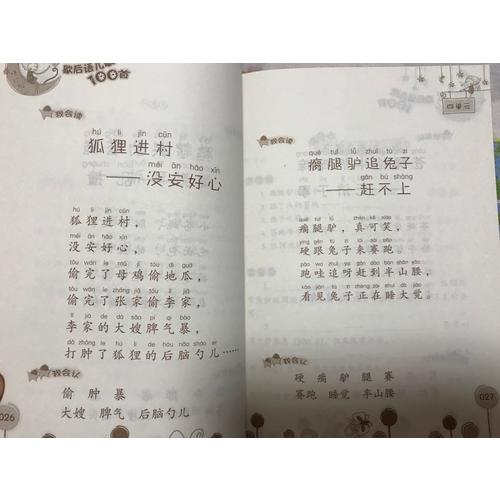 歇后语儿歌
100首
我会读
hú li jìn cūn
狐狸进村
méi ān hǎo xīn
——没安好心
hú li jìn cūn
狐狸进村，
méi ān hǎo xīn
没安好心，
tōu wán le mǔ jī tōu dì guā
偷完了母鸡偷地瓜，
tōu wán le zhāng jiā tōu lǐ jiā
偷完了张家偷李家，
lǐ jiā de dà sǎo pí qi bào
李家的大嫂脾气暴，
dǎ zhǒng le hú li de hòu nǎo sháo er
打肿了狐狸的后脑勺儿……
我会认
偷 肿 暴
大嫂 脾气 后脑勺儿
026
四单元
我会读
qué tuǐ lǘ zhuī tù zi
瘸腿驴追兔子
gǎn bú shàng
——赶不上
qué tuǐ lǘ zhēn kě xiào
瘸腿驴，真可笑，
yìng gēn tù zi lái sài pǎo
硬跟兔子来赛跑，
pǎo wa zhuī ya gǎn dào bàn shān yāo
跑哇追呀赶到半山腰，
kàn jiàn tù zi zhèng zài shuì dà jiào
看见兔子正在睡大觉。
我会认
硬 瘸 驴 腿 赛
赛跑 睡觉 半山腰
027